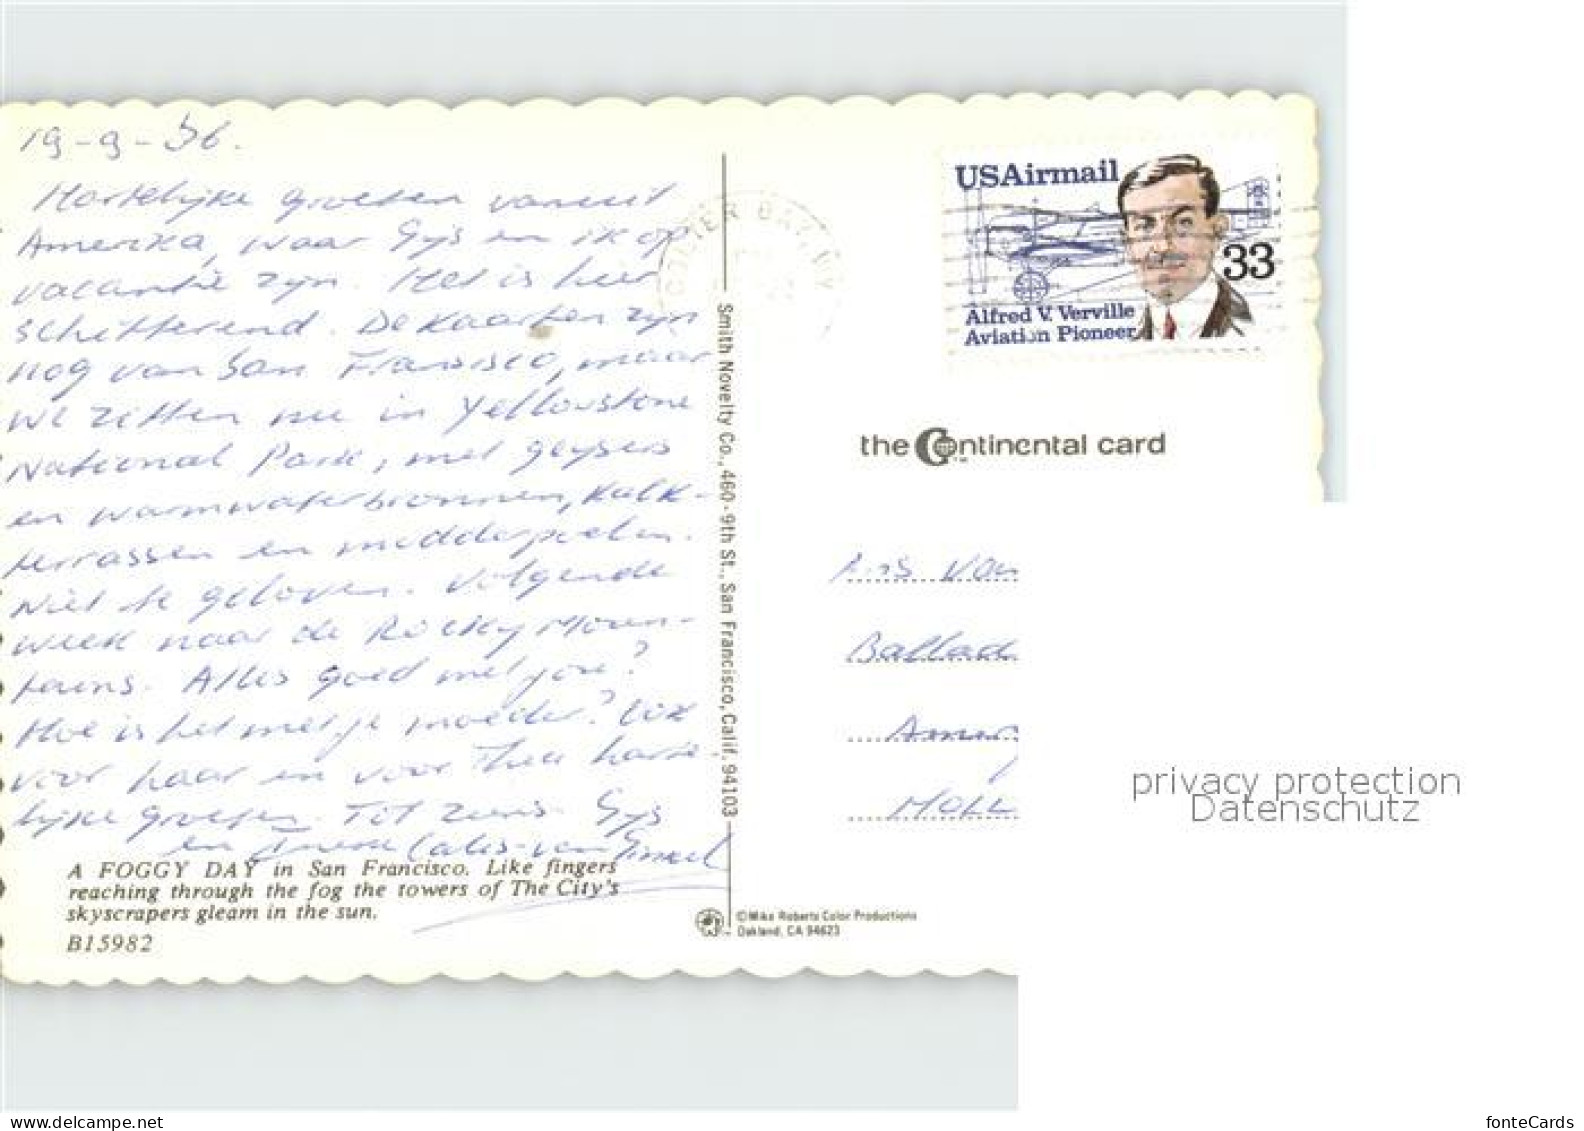 19-9-86.
Hartelijke groeten vanuit
Amerika, waar Gijs en ik op
vacantie zijn. Het is heer
schitterend. De kaarten zijn
nog van San Francisco, maar
we zitten nu in Yellowstone
National Park, met geysers
en warmwaterbronnen, kalk-
terrassen en modderpoelen.
Niet te geloven. Volgende
week naar de Rocky Moun-
tains. Alles goed met jou?
Hoe is het met je moeder? Ook
voor haar en voor Theu harte-
lijke groeten. Tot ziens. Gijs
en van Ginkel
A FOGGY DAY in San Francisco. Like fingers
reaching through the fog the towers of The City's
skyscrapers gleam in the sun.
B15982
Smith Novelty Co., 460 - 9th St., San Francisco, Calif. 94103
© Mike Roberts Color Productions
Oakland, CA 94623
USAirmail
33
Alfred V. Verville
Aviation Pioneer
the Continental card
van
Ballad
Amer
HOLL
privacy protection
Datenschutz
fonteCards